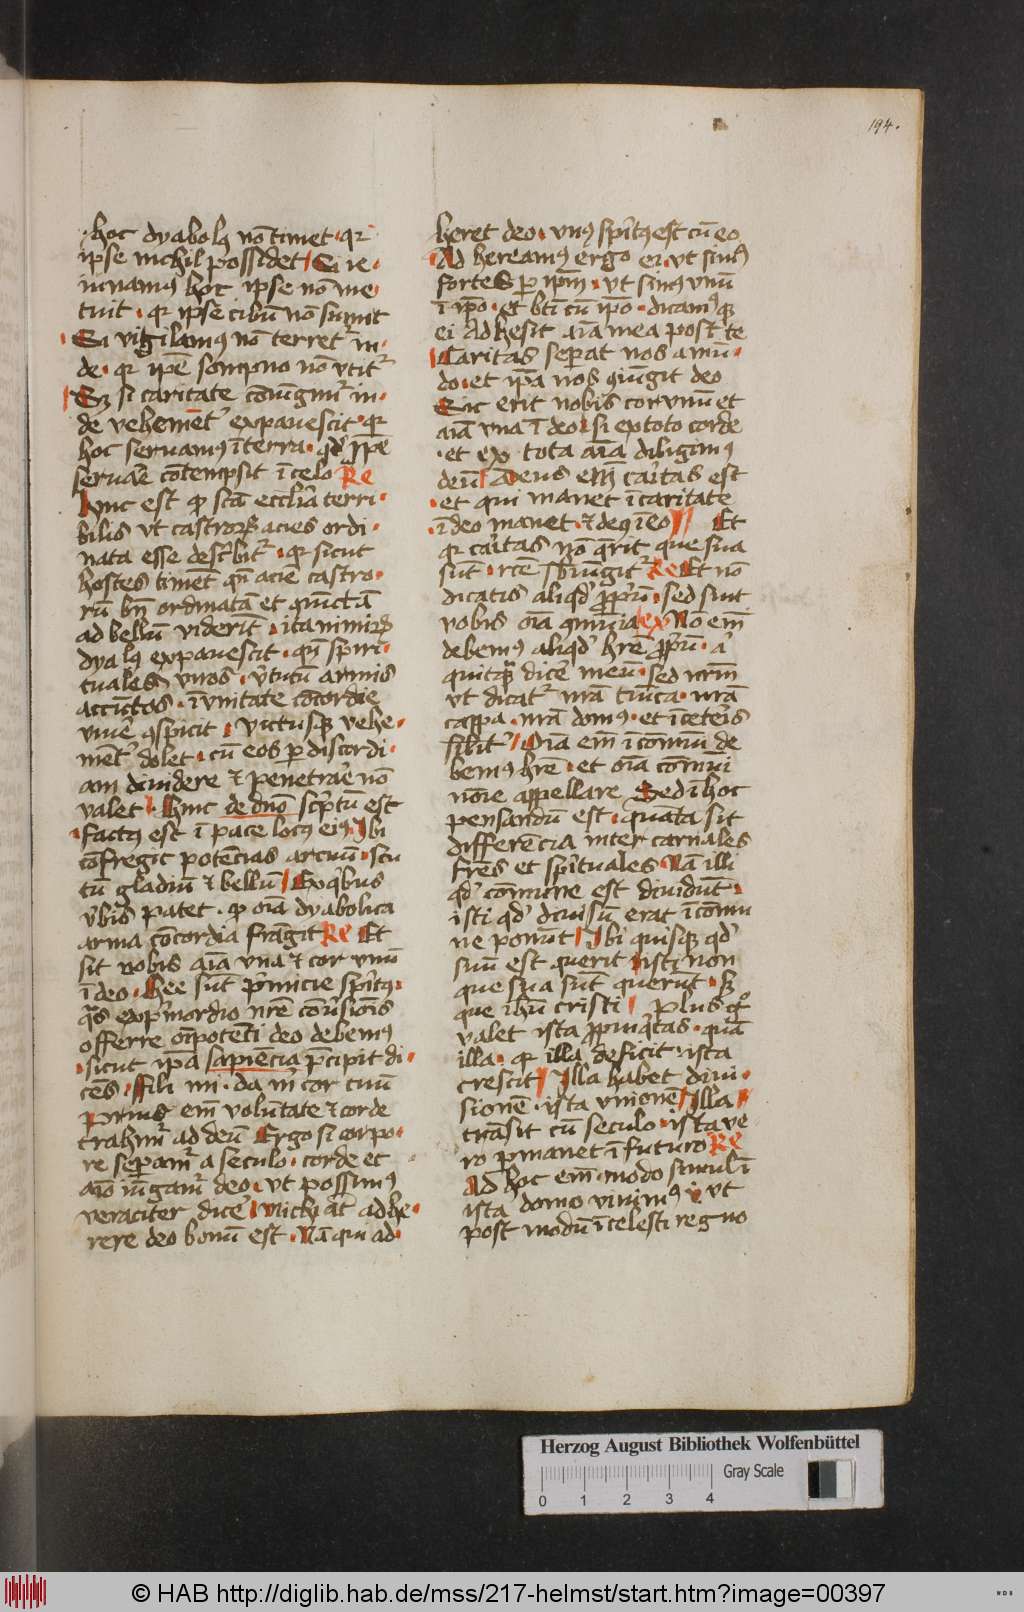 194.
hoc dyabolꝰ nō timet · qr
ipse nichil possidet Si ie·
iunamꝰ hoc ipse nō me·
tuit · qr ipse cibū nō sumit
Si vigilamꝰ nō terret᷑ in·
de · qr ipē sompno nō vtit᷑
Sꝫ si caritate cōiūgim᷑ in·
de vehemēt᷑ expauescit · qr
hoc seruamꝰ ī terra · qd' ip̄e
seruāe cōtempsit ī celo Re
hinc est ꝙ scā eccl̄ia terri·
bilis vt castroꝝ acies ordi·
nata esse describit᷑ · qr sicut
hostes timēt qn̄ aciē castro·
rū bn̄ ordinatā et qūictā
ad bellū viderīt · ita nimiꝝ
dyalꝰ expauescit · qn̄ spiri·
tuales viros · v̓tutū armis
accīctos · ī vnitate cōcordie
viuē ꝯspicit · victusqꝫ vehe·
mēt᷑ dolet · cū eos ꝑ discordi·
am diuidere ⁊ penetrāe nō
valet · hinc de dn̄o sc̓ptū est
factꝰ est ī pace locꝰ eiꝰ Ibi
cōfregit potēcias arcuū · scu
tū gladiū ⁊ bellū Ex qͥbus
v̓bis patet · ꝙ oīa dyabolica
arma cōcordia frāgit Re Et
sit vobis aīa vna ⁊ cor vnū
ī deo · hee sūt p̓micie sp̄itꝰ·
qͣs exp̓mordio nr̄e cōu̓sionis
offerre oīpotēti deo debemꝰ
· sicut ip̄a sapiēcia p̄cipit di·
cēs · Fili mi · da mͥ cor tuū
prius em̄ volūtate ⁊ corde
trahim᷑ ad deū Ergo si corpo·
re seꝑam᷑ a seculo · corde et
aīo iūgam᷑ deo · vt possimꝰ
veraciter dicē Michi āt adhe·
rere deo bonū est · Nā qui ad
heret deo · vnꝰ sp̄itꝰ est cū eo
Ad hereamꝰ ergo ei · vt simꝰ
fortes ꝑ ip̄m · vt simꝰ vnū
ī ip̄o · et bt̄i cū ip̄o · dicamꝰqꝫ
ei Adhesit aīa mea post te
Caritas seꝑat nos a mū·
do · et ip̄a nos ꝯiūgit deo
Sic erit nobis cor vnū et
aīa vna ī deo · si ex toto corde
· et ex tota aīa diligimꝰ
deū Deus em̄ cāitas est
· et qui manet ī caritate
· ī deo manet · ⁊ deꝰ ī eo Et
qr cāitas nō q̄rit que sua
sūt · rcē sb̓iūgit᷑ Re Et nō
dicatis aliqd' ꝓpriū · sed sint
vobis oīa ꝯmūia ex Nō em̄
debemꝰ aliqd' hr̄e ꝓpriū · a̓
quitqͣ dicē meū · sed nr̄m
vt dicat᷑ nr̄a tunica · nr̄a
cappa · nr̄a domꝰ · et ī cet̓is
sil̓it᷑ Oīa em̄ ī comūi de
bemꝰ hr̄e · et oīa comūi
noīe appellare Sed ī hoc
pensandū est · quāta sit
differēcia inter carnales
fr̄es et sp̄ituales · Nā illi
qd' commune est diuidūt ·
isti qd' diuisū erat ī comu
ne ponūt Ibi quisqꝫ qd'
suū est querit isti non
que sua sūt querūt · sꝫ
que ihū cristi plus g͛
valet ista ꝓpīqͥtas · quā
illa · qr illa deficit ista
crescit Illa habet diui·
sionē · ista vnionē Illa
trāsit cū seculo · ista ve
ro ꝑmanet ī futuro Re
Ad hoc em̄ · modo simul ī
ista domo viuimꝰ · vt
post modū ī celesti regno
Herzog August Bibliothek Wolfenbüttel
Gray Scale
0 1 2 3 4
© HAB http://diglib.hab.de/mss/217-helmst/start.htm?image=00397